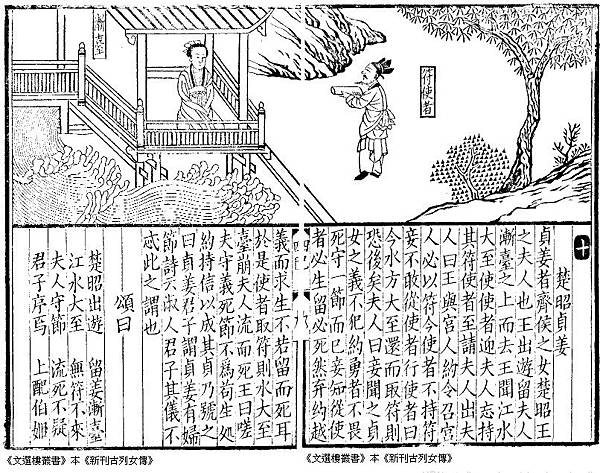 符使者
十
楚昭貞姜
貞姜者齊侯之女楚昭王
之夫人也王出遊留夫人
漸臺之上而去王聞江水
大至使使者迎夫人忘持
其符使者至請夫人出夫
人曰王與宮人約令召宮
人必以符今使者不持符
妾不敢從使者行使者曰
今水方大至還而取符則
恐後矣夫人曰妾聞之貞
女之義不犯約勇者不畏
死守一節而已妾知從使
者必生留必死然弃約越
義而求生不若留而死耳
於是使者取符則水大至
臺崩夫人流而死王曰嗟
夫守義死節不爲苟生處
約持信以成其貞乃號之
曰貞姜君子謂貞姜有婦
節詩云淑人君子其儀不
忒此之謂也
頌曰
楚昭出遊 留姜漸臺
江水大至 無符不來
夫人守節 流死不疑
君子序焉 上配伯姬
《文選樓叢書》本《新刊古列女傳》
《文選樓叢書》本《新刊古列女傳》